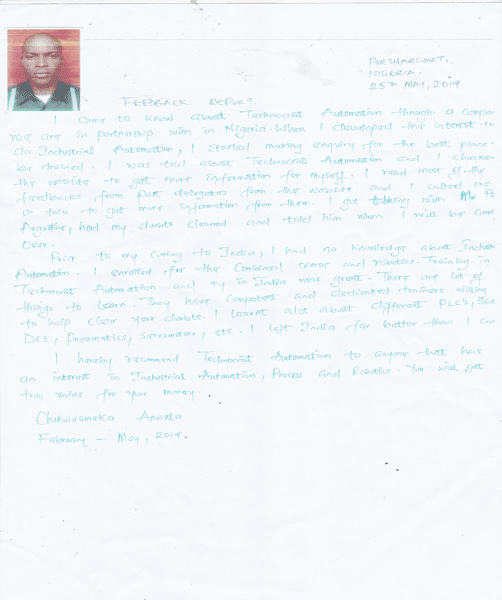 PORTHARCOURT,
NIGERIA.
25TH MAY, 2014
FEEDBACK REPORT.
I came to know about Technocrat Automation through a compan
we are in partnership with in Nigeria. When I developed the interest to
do Industrial Automation, I started making enquiry for the best place
be trained. I was told about Technocrat Automation and I
the website to get more information for myself. I read most of the
feedbacks from Past delegates from the website and I called one
or two to get more information from them. I got talking with Mr
Augustine, had my doubts cleared and told him when I will be com
over.
Prior to my coming to India, I had no knowledge about Indus
Automation. I enrolled for the Combined course and robotics. Training in
Technocrat Automation and my in India was great. There are lot of
things to learn. They have competent and dedicated trainers willing
to help clear your doubts. I learnt alot about different PLC's, SCA
DCS, Pneumatics, Servomotors, etc. I left India far better than I
I hereby recommend Technocrat Automation to anyone that has
an interest in Industrial Automation, Process and Robotics. You will get
true value for your money.
Chukwuemeka Anwala
February - May, 2014.